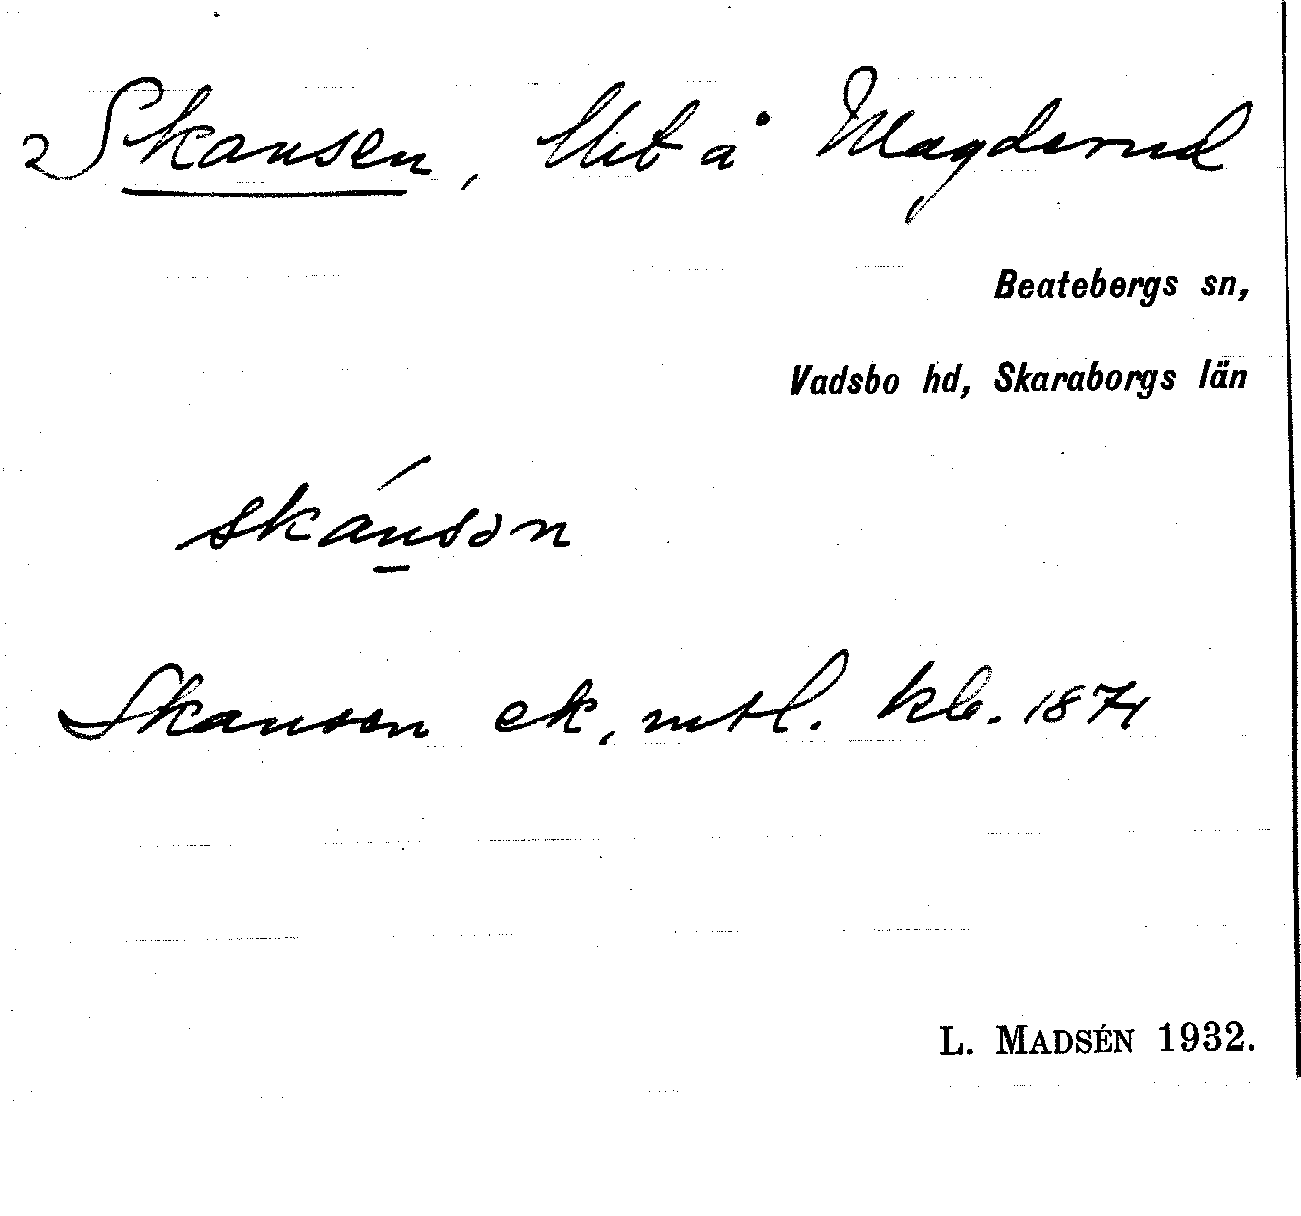 Skansen, lht å Magderud
Beatebergs sn,
Vadsbo hd, Skaraborgs län
skánsən
Skansen ek, mtl. kb. 1871
L. MADSÉN 1932.